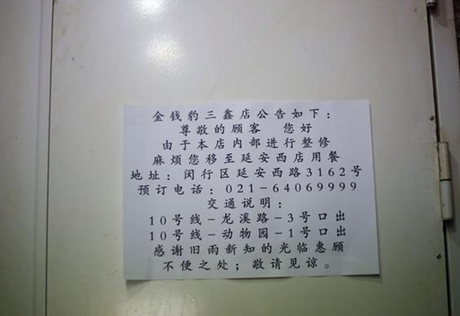 金钱豹三鑫店公告如下：
尊敬的顾客　您好
由于本店内部进行整修
麻烦您移至延安西店用餐
地址：闵行区延安西路3162号
预订电话：021-64069999
交通说明：
10号线-龙溪路-3号口出
10号线-动物园-1号口出
感谢旧雨新知的光临惠顾
不便之处；敬请见谅。